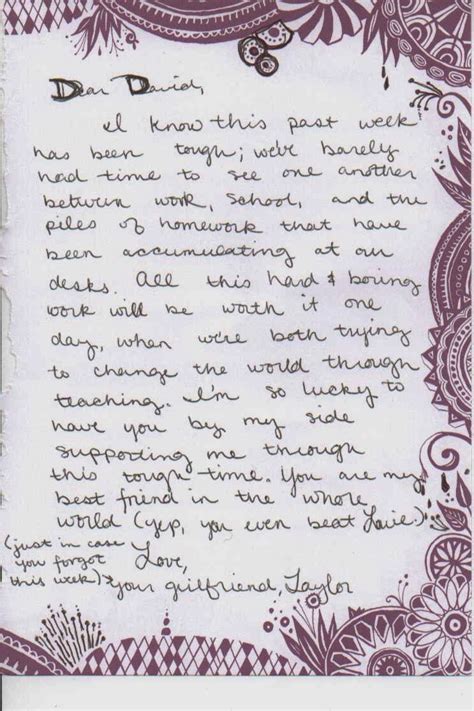 Dear David,
I know this past week
has been tough; we've barely
had time to see one another
between work, school, and the
piles of homework that have
been accumulating at our
desks. All this hard & boring
work will be worth it one
day, when we're both trying
to change the world through
teaching. I'm so lucky to
have you by my side
supporting me through
this tough time. You are my
best friend in the whole
world (yep, you even beat Lovie.)
Love,
(just in case
you forgot
this week) your girlfriend, Taylor